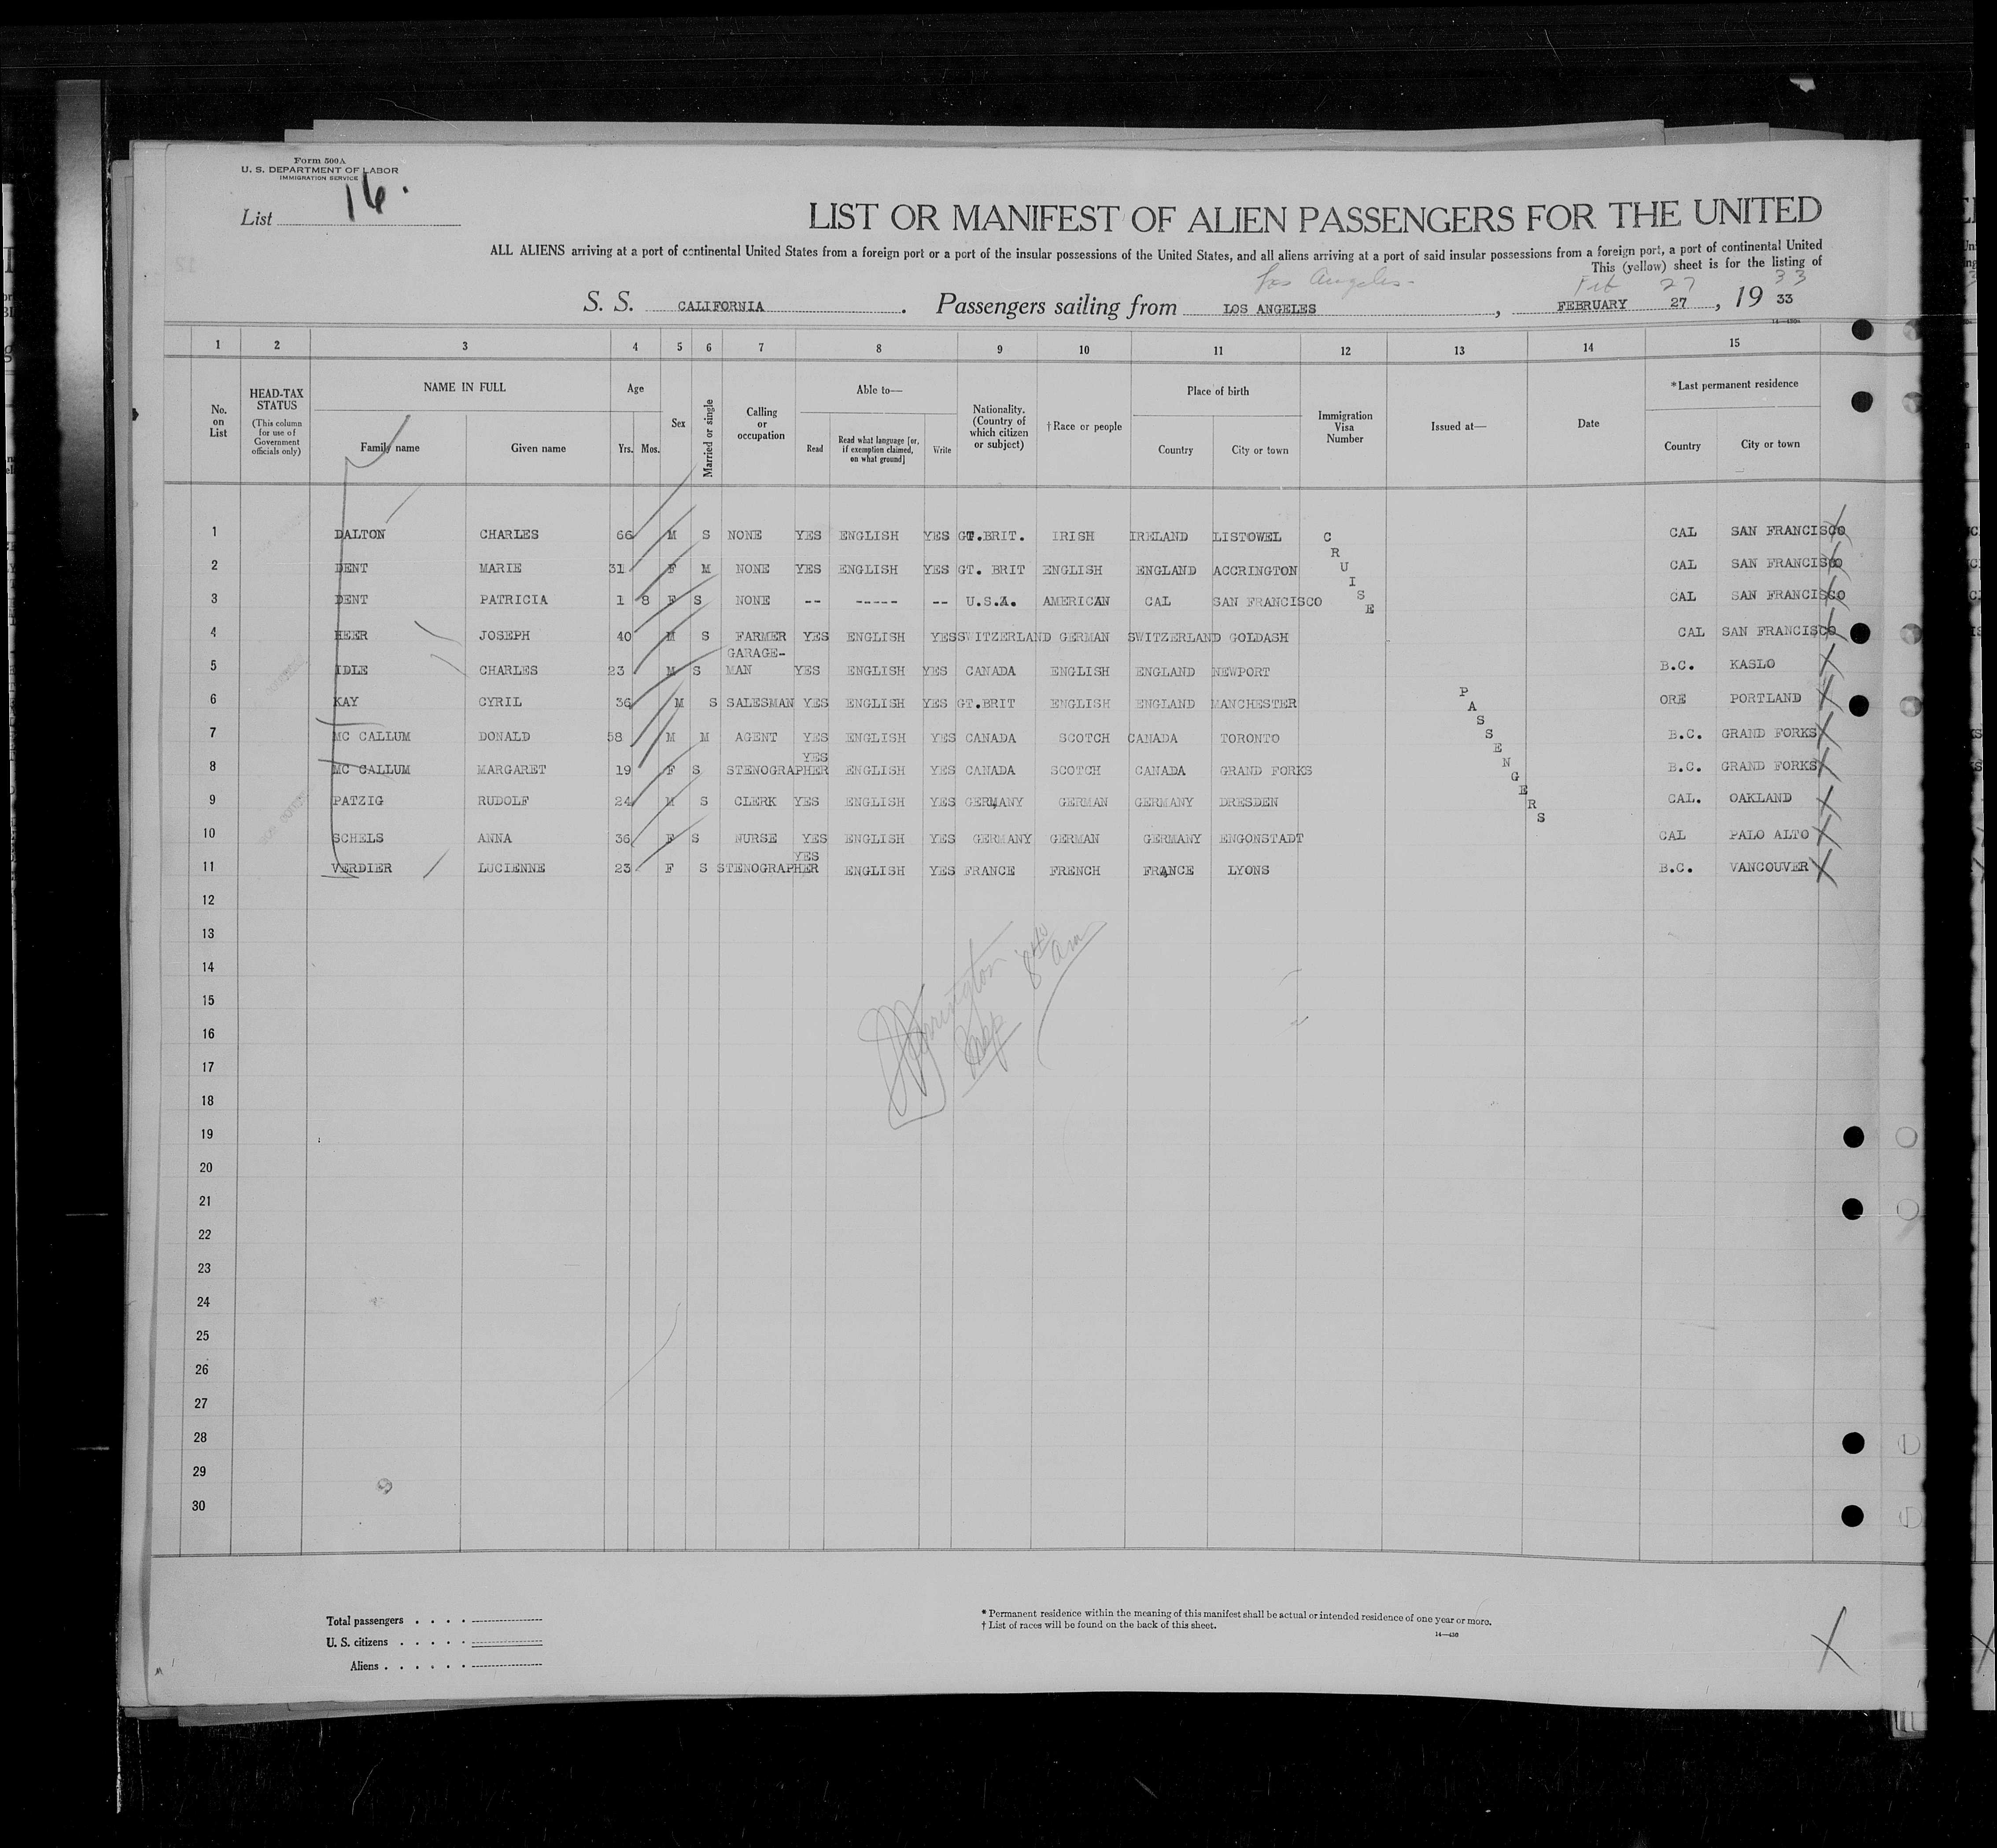 Form 500A
U. S. DEPARTMENT OF LABOR
IMMIGRATION SERVICE
List 16.
LIST OR MANIFEST OF ALIEN PASSENGERS FOR THE UNITED
ALL ALIENS arriving at a port of continental United States from a foreign port or a port of the insular possessions of the United States, and all aliens arriving at a port of said insular possessions from a foreign port, a port of continental United
This (yellow) sheet is for the listing of
Los Angeles - Feb 27 33
S. S. CALIFORNIA . Passengers sailing from LOS ANGELES , FEBRUARY 27 , 19 33
14—430a
1 2 3 4 5 6 7 8 9 10 11 12 13 14 15
No. on List
HEAD-TAX STATUS
(This column for use of Government officials only)
NAME IN FULL
Family name Given name
Age
Yrs. Mos.
Sex
Married or single
Calling or occupation
Able to—
Read Read what language [or, if exemption claimed, on what ground] Write
Nationality. (Country of which citizen or subject)
†Race or people
Place of birth
Country City or town
Immigration Visa Number
Issued at—
Date
*Last permanent residence
Country City or town
1 DALTON CHARLES 66 M S NONE YES ENGLISH YES GT.BRIT. IRISH IRELAND LISTOWEL CAL SAN FRANCISCO
2 DENT MARIE 31 F M NONE YES ENGLISH YES GT. BRIT ENGLISH ENGLAND ACCRINGTON CAL SAN FRANCISCO
3 DENT PATRICIA 1 8 F S NONE -- ----- -- U.S.A. AMERICAN CAL SAN FRANCISCO CAL SAN FRANCISCO
CRUISE
4 HEER JOSEPH 40 M S FARMER YES ENGLISH YES SWITZERLAND GERMAN SWITZERLAND GOLDASH CAL SAN FRANCISCO
5 IDLE CHARLES 23 M S GARAGE-MAN YES ENGLISH YES CANADA ENGLISH ENGLAND NEWPORT B.C. KASLO
6 KAY CYRIL 36 M S SALESMAN YES ENGLISH YES GT.BRIT ENGLISH ENGLAND MANCHESTER ORE PORTLAND
7 MC CALLUM DONALD 58 M M AGENT YES ENGLISH YES CANADA SCOTCH CANADA TORONTO B.C. GRAND FORKS
8 MC CALLUM MARGARET 19 F S STENOGRAPHER YES ENGLISH YES CANADA SCOTCH CANADA GRAND FORKS B.C. GRAND FORKS
9 PATZIG RUDOLF 24 M S CLERK YES ENGLISH YES GERMANY GERMAN GERMANY DRESDEN CAL. OAKLAND
PASSENGERS
10 SCHELS ANNA 36 F S NURSE YES ENGLISH YES GERMANY GERMAN GERMANY ENGONSTADT CAL PALO ALTO
11 VERDIER LUCIENNE 23 F S STENOGRAPHER YES ENGLISH YES FRANCE FRENCH FRANCE LYONS B.C. VANCOUVER
12
13
14
15
16
17
18
19
20
21
22
23
24
25
26
27
28
29
30
Total passengers . . . .
U. S. citizens . . . . .
Aliens . . . . . .
* Permanent residence within the meaning of this manifest shall be actual or intended residence of one year or more.
† List of races will be found on the back of this sheet.
14—430